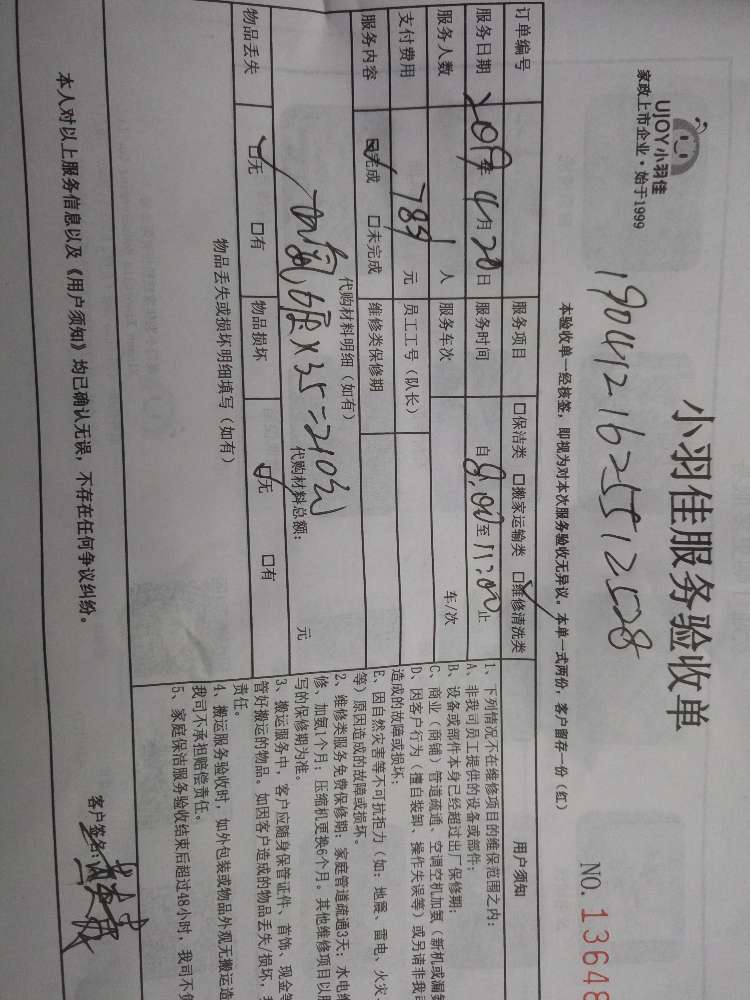 UJOY小羽佳
家政上市企业·始于1999
小羽佳服务验收单
NO. 13648
本验收单一经核签，即视为对本次服务验收无异议。本单一式两份，客户留存一份（红）
订单编号 1904121625512528
服务项目 口保洁类 口搬家运输类 口维修清洗类
服务日期 2019年4月20日 服务时间 自8:00至11:00止
服务人数 1人 服务车次 车/次
支付费用 785元 员工工号（队长）
服务内容 口完成 口未完成 维修类保修期
代购材料明细（如有）
加氟6压×35=210元
代购材料总额： 元
物品丢失 口无 口有 物品损坏 口无 口有
物品丢失或损坏明细填写（如有）
用户须知
1、下列情况不在维修项目的维保范围之内：
A、非我司员工提供的设备或部件；
B、设备或部件本身已经超过出厂保修期；
C、商业（商铺）管道疏通、空调空机加氨（新机或漏氨
D、因客户行为（擅自装卸、操作失误等）或另请非我司
造成的故障或损坏；
E、因自然灾害等不可抗拒力（如：地震、雷电、火灾、
等）原因造成的故障或损坏。
2、维修类服务免费保修期：家庭管道疏通3天；水电维
修、加氨1个月；压缩机更换6个月。其他维修项目以服
写的保修期为准。
3、搬运服务中，客户应随身保管证件、首饰、现金等
管好搬运的物品。如因客户造成的物品丢失/损坏，我
责任。
4、搬运服务验收时，如外包装或物品外观无搬运造
我司不承担赔偿责任。
5、家庭保洁服务验收结束后超过48小时，我司不负
本人对以上服务信息以及《用户须知》均已确认无误，不存在任何争议纠纷。
客户签名：